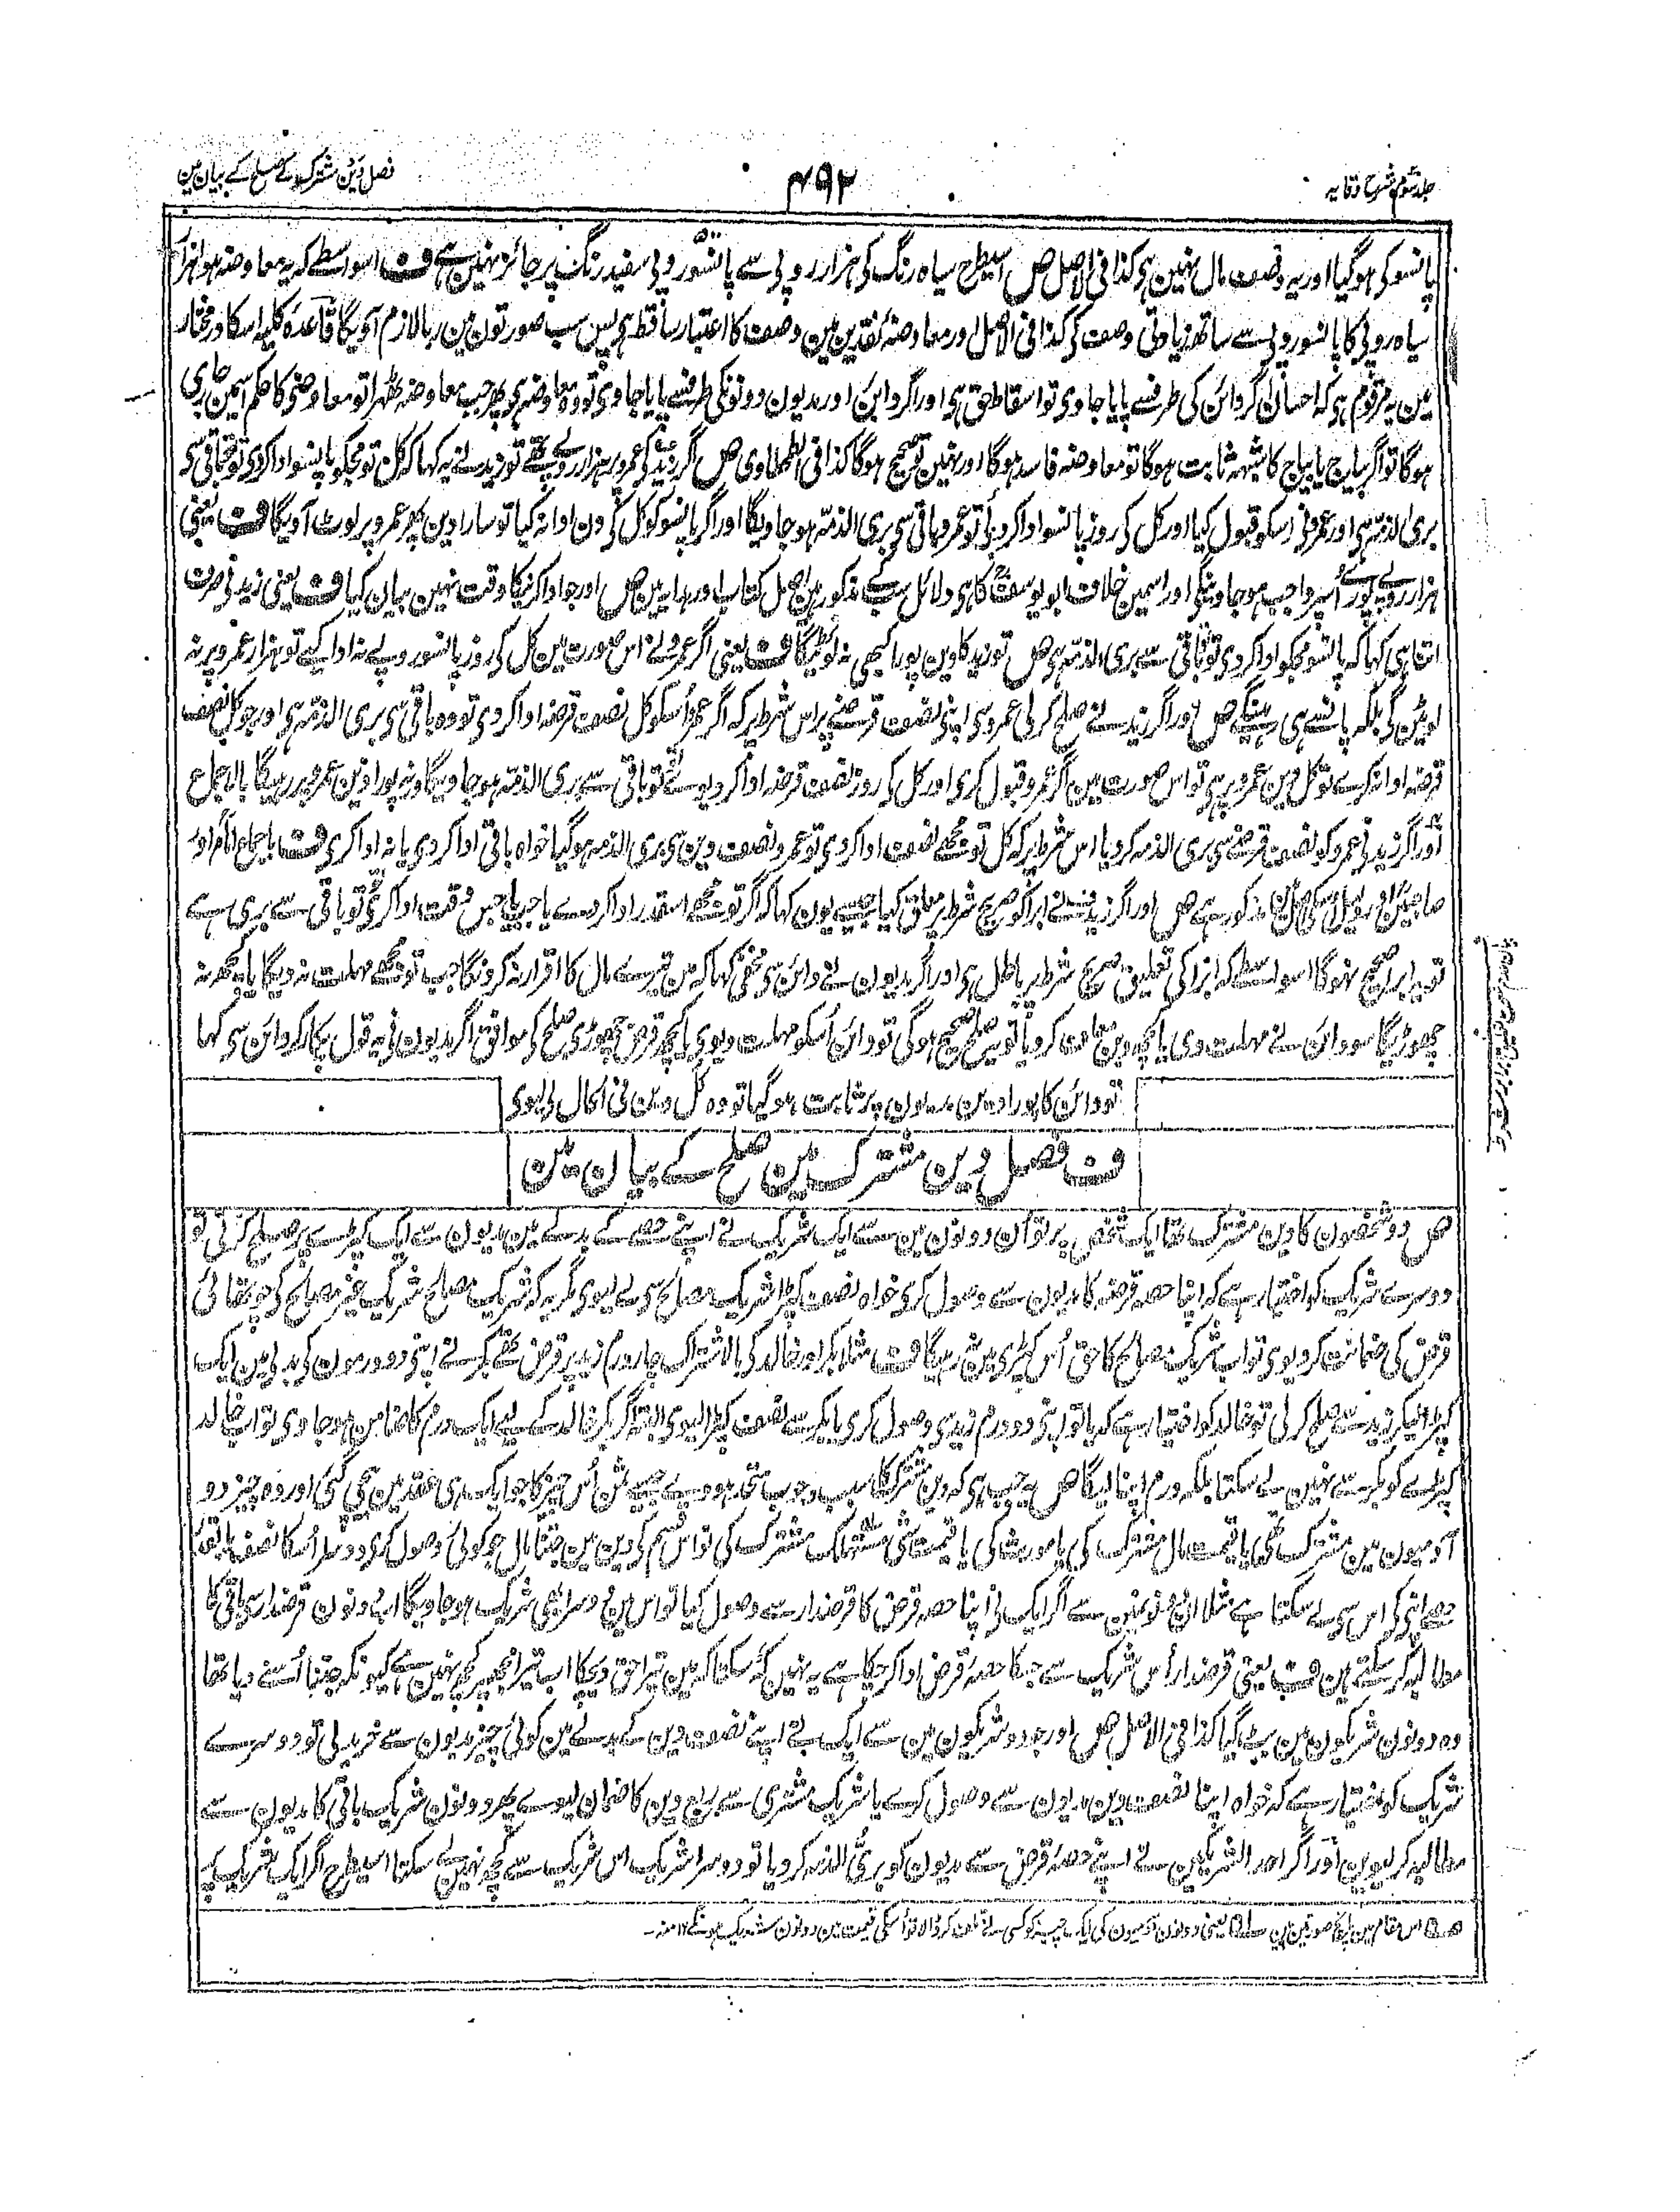 جلد سوم شرح وقایہ
۴۹۲
فصل دَین مشترک کے صلح کے بیان مین
پانسو کی ہوگیا اور یہ وصف مال نہین ہی کذا فی الاصل ص اسیطرح سیاہ رنگ کی ہزار روپی سے پانسو روپی سفید رنگ پر جائز نہین ہے ف اسواسطے کہ یہ معاوضہ ہوا ہزار
سیاہ روپی کا پانسو روپی سے ساتھ زیادتی وصف کی کذا فی الاصل اور معاوضۂ نقدین مین وصف کا اعتبار ساقط ہی پس سب صورتون مین ربا لازم آویگا قاعدہ کلیہ اسکا درمختار
مین یہ مرقوم ہی کہ احسان اگر دائن کی طرفسے پایا جاوی تو اسقاط حق ہی اور اگر دائن اور مدیون دونونکی طرفسے پایا جاوی تو وہ معاوضہ ہی پھر جب معاوضہ ٹھہرا تو معاوضی کا حکم اسمین جاری
ہوگا تو اگر بیاج یا بیاج کا شبہہ ثابت ہوگا تو معاوضہ فاسد ہوگا اور نہین تو صحیح ہوگا کذا فی الطحطاوی ص اگر زید کی عمرو پر ہزار روپے تھے تو زید نے یہ کہا کہ کل تو مجکو پانسو ادا کردی تو باقی سی
بری الذمہ ہی اور عمرو نی اسکو قبول کیا اور کل کی روز پانسو ادا کردئی تو عمرو باقی سی بری الذمہ ہوجاویگا اور اگر پانسو کو کل کی دن ادا نہ کیا تو سارا دین پھر عمرو پر لوٹ آویگا ف یعنی
ہزار روپے پورے اُسپر واجب ہوجاوینگی اور اسمین خلاف ابو یوسفؒ کا ہی دلائل سب کے مذکور ہین اصل کتاب اور ہدایہ مین ص اور جو ادا کرنیکا وقت نہین بیان کیا ف یعنی زید نی صرف
اتنا ہی کہا کہ پانسو مجکو ادا کردی تو باقی سے بری الذمہ ہی ص تو زید کا دین پورا کبھی نہ لوٹیگا ف یعنی اگر عمرو نے اس صورت مین کل کی روز پانسو روپے نہ ادا کیے تو ہزار عمرو پر نہ
لوٹین گی بلکہ پانسے ہی رہینگے ص اور اگر زید نے صلح کرلی عمرو سی اپنی نصف قرضے پر اس شرط پر کہ اگر عمرو اُسکو کل نصف قرضہ ادا کردی تو وہ باقی سی بری الذمہ ہی اور جو کل نصف
قرضہ ادا نہ کرے تو کل دین عمرو پر ہی تو اس صورت مین اگر عمرو قبول کری اور کل کی روز نصف قرضہ ادا کردیوے تو باقی سے بری الذمہ ہوجاویگا ورنہ پورا دین عمرو پر رہیگا بالاجماع
اور اگر زید نی عمرو کو نصف قرضے سی بری الذمہ کردیا اس شرط پر کہ کل تو مجھے نصف ادا کردی تو عمرو نصف دین سی بری الذمہ ہوگیا خواہ باقی ادا کردی یا نہ ادا کری ف باجماع امام اور
صاحبین اور دلیل اسکی اصل مین مذکور ہے ص اور اگر زید نے ابرا کو صریح شرط پر معلق کیا جیسے یون کہا کہ اگر تو مجھے اسقدر ادا کردے یا جب یا جس وقت ادا کری تو باقی سے بری ہے
تو یہ ابرا صحیح نہوگا اسواسطے کہ ابرا کی تعلیق صریح شرط پر باطل ہی اور اگر مدیون نے دائن سی مخفی کہا کہ مین تیرے مال کا اقرار نہ کرونگا جب تک تو مجھے مہلت نہ دیگا یا کچھ نہ
چھوڑیگا سو دائن نے مہلت دی یا کچھ دین معاف کردیا تو یہ صلح صحیح ہوگی تو دائن اُسکو مہلت دیوی یا کچھ قرض چھوڑی صلح کی موافق اگر مدیون نی یہ قول پکار کر دائن سی کہا
تو دائن کا پورا دین مدیون پر ثابت ہوگیا تو وہ کل دین فی الحال لیوی
ف فصل دین مشترک مین صلح کے بیان مین
ص دو شخصون کا دین مشترک تھا ایک شخص پر تو اُن دونون مین سے ایک شریک نے اپنے حصے کے بدلے مین مدیون سے ایک کپڑے پر صلح کرلی تو
دوسرے شریک کو اختیار ہے کہ اپنا حصہ قرضہ کا مدیون سے وصول کری خواہ نصف کپڑا شریک مصالح سی لے لیوی مگر یہ کہ شریک مصالح شریک غیر مصالح کی چوتھائی
قرض کی ضمانت کردیوی تو اب شریک مصالح کا حق اُس کپڑی مین نہ رہیگا ف مثلا بکر اور خالد کی بالاشتراک چار درم زید پر قرض تھے بکر نے اپنی دو درمون کی بدلی مین ایک
کپڑا لیکر زید سے صلح کرلی تو خالد کو اختیار ہے کہ یا تو اپنی دو درم زید سی وصول کری یا بکر سے نصف کپڑا لیوی البتہ اگر بکر خالد کے لیے ایک درم کا ضامن ہوجاوی تو اب خالد
کپڑے کو بکر سے نہین لے سکتا بلکہ درم اپنا لیگا ص یہ جب ہی کہ دین مشترک کا سبب وجوب متحد ہووے جیسے ثمن اُس چیز کا جو ایک ہی عقد مین بیچی گئی اور وہ چیز دو
آدمیون مین مشترک تھی یا قیمت مال مشترک کی یا موروث کی یا قیمت شی مستہلک مشترک کی تو اس قسم کی دین مین جتنا مال جو کوئی وصول کری دوسرا اُسکا نصف یا بقدر
حصہ اپنی کی اس سی لے سکتا ہے مثلا ان دونونمین سے اگر ایک نی اپنا حصہ قرض کا قرضدار سے وصول کیا تو اس مین دوسرا بھی شریک ہوجاویگا اب دونون قرضدار سی باقی کا
مطالبہ کرسکتے ہین ف یعنی قرضدار اُس شریک سے جسکا حصہ قرض ادا کرچکا ہے یہ نہین کہہ سکتا کہ مین تیرا حق دیچکا اب تیرا مجھپر کچھ نہین ہے کیونکہ جتنا اُسنے دیا تھا
وہ دونون شریکون مین بٹ گیا کذا فی الاصل ص اور جو دو شریکون مین سے ایک نے اپنے نصف دین کے بدلے مین کوئی چیز مدیون سے خرید لی تو دوسرے
شریک کو اختیار ہے کہ خواہ اپنا نصف دین مدیون سے وصول کرے یا شریک مشتری سے ربع دین کا ضمان لیوے پھر دونون شریک باقی کا مدیون سے
مطالبہ کرلیوین اور اگر احد الشریکین نے اپنے حصہ قرض سے مدیون کو بریُ الذمہ کردیا تو دوسرا شریک اس شریک سے کچھ نہین لے سکتا اسیطرح اگر ایک شریک پر
اس مقام مین پانچ صورتین ہین یعنی دونون آدمیون کی ایک چیز کو کسی نے تلف کرڈالا تو اُسکی قیمت مین دونون شریک ہونگے ۱۲ منہ